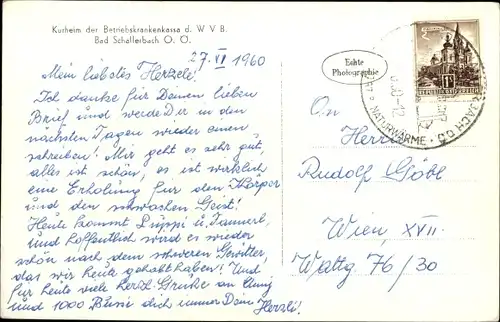 Kurheim der Betriebskrankenkassa d. W V B.
Bad Schallerbach O. Ö.
27. VI 1960
Mein liebstes Herzele!
Ich danke für Deinen lieben
Brief und werde Dir in den
nächsten Tagen wieder einen
schreiben! Mir geht es sehr gut,
alles ist schön, es ist wirklich
eine Erholung für den Körper
und den schwachen Geist!
Heute kommt Puppi u. Tannerl,
und hoffentlich wird es wieder
schön nach dem schweren Gewitter,
das wir heute gehabt haben! Und
für heute viele herzl. Grüße an
und 1000 Bussi dich immer Dein Herzle!
Echte
Photographie
REPUBLIK ÖSTERREICH
NATURWÄRME
BACH O.Ö.
An
Herrn
Rudolf Göbl
Wien, XVII.
Wattg 76/30